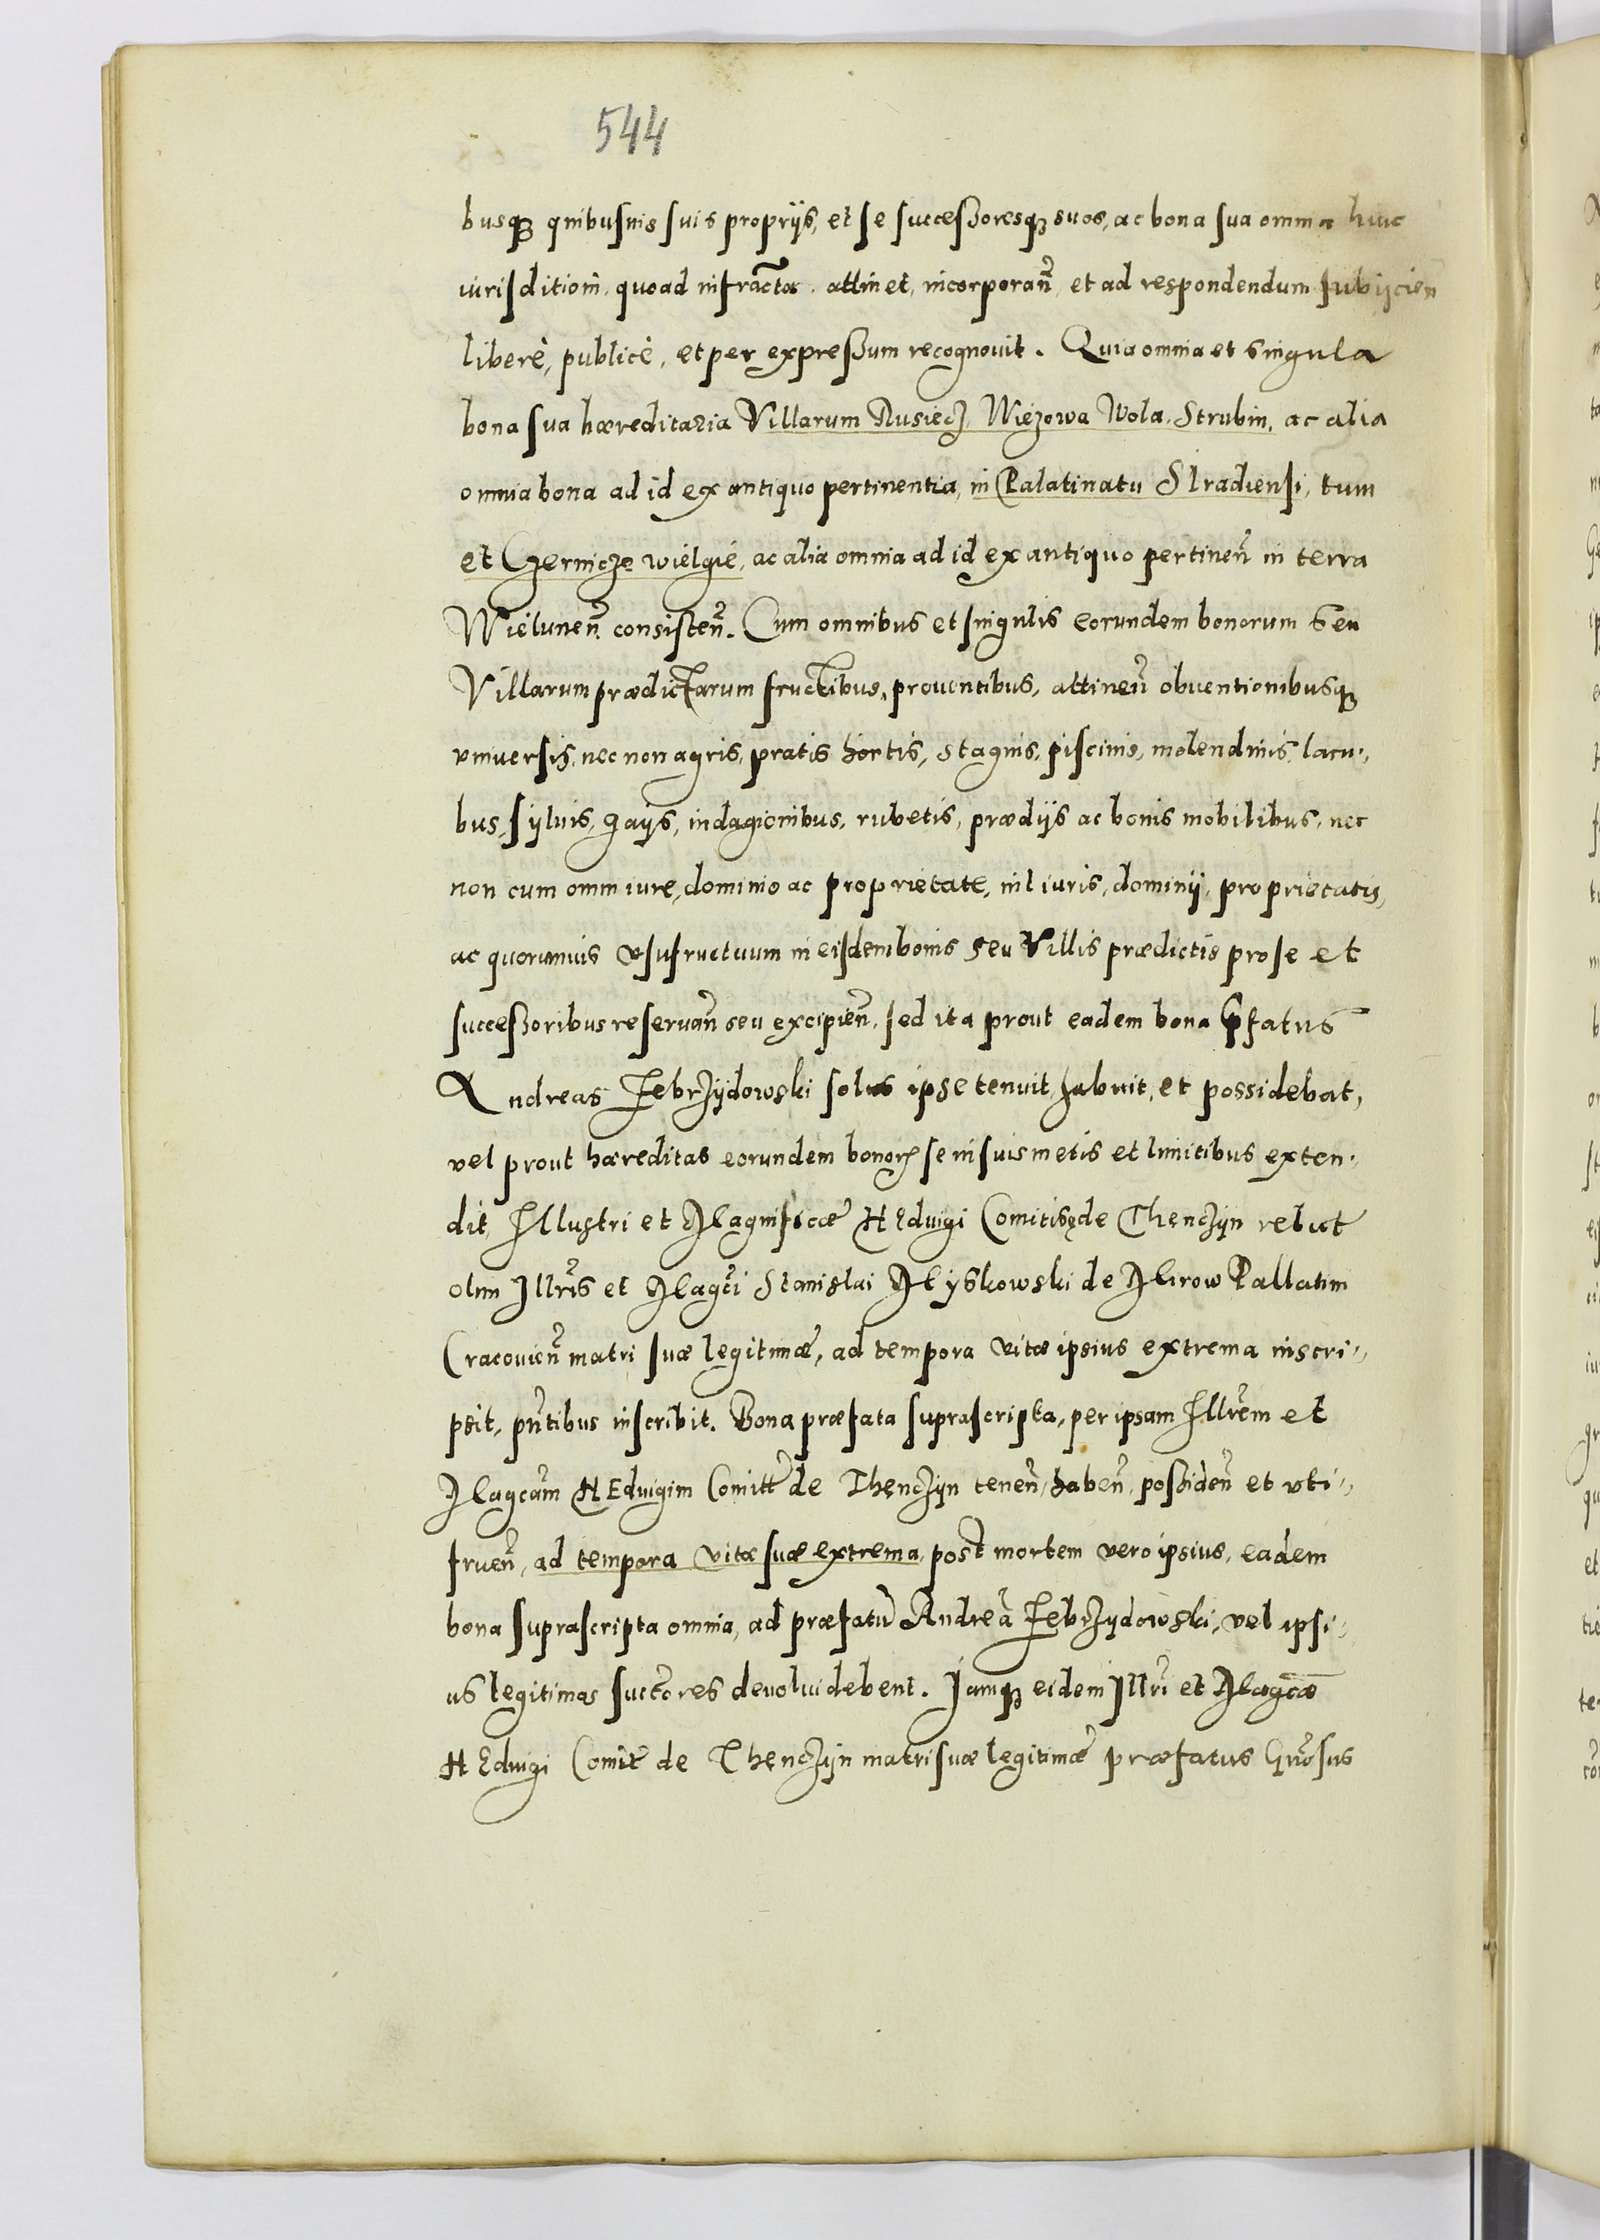 544
busq3 quibusuis suis proprijs, et se successoresq3 suos, ac bona sua omnia huic
iurisditioni, quoad infracta attinet, incorporan̄, et ad respondendum subijcien̄
liberè, publicè, et per expressum recognouit. Quia omnia et singula
bona sua hæreditaria Villarum Rusiecz, Wiézowa Wola, Strubin, ac alia
omnia bona ad id ex antiquo pertinentia, in Palatinatu Siradiensi, tum
et Czernicze wiélgié, ac alia omnia ad id ex antiquo pertinen̄ in terra
Wiélunen̄ consisten̄. Cum omnibus et singulis eorundem bonorum seu
Villarum prædictarum fructibus, prouentibus, attinen̄ obuentionibusq3
vniuersis, nec non agris, pratis hortis, stagnis, piscinis, molendinis, lacu-
bus, syluis, gajis, indagionibus, rubetis, prædijs ac bonis mobilibus, nec
non cum omni iure, dominio ac proprietate, nil iuris, dominij, proprietatis,
ac quorumuis vsufructuum in eisdem bonis seu Villis prædictis pro se et
successoribus reseruan̄ seu excipien̄, sed ita prout eadem bona p̄fatus
Andreas Zebrzydowski solus ipse tenuit, habuit, et possidebat,
vel prout hæreditas eorundem bonorum se in suis metis et limitibus exten-
dit, Illustri et Magnificæ Heduigi Comitissę de Thenczyn relict
olim Illr̄is et Magc̄i Stanislai Myskowski de Mirow Pallatini
Cracouien̄ matri suæ legitimæ, ad tempora vitæ ipsius extrema inscri-
psit, pn̄tibus inscribit. Bona præfata suprascripta, per ipsam Illr̄em et
Magcām Heduigim Comitt de Thenczyn tenen̄, haben̄, possiden̄ et vti-
fruen̄, ad tempora vitæ suæ extrema, post mortem vero ipsius, eadem
bona suprascripta omnia, ad præfatū Andreā Zebrzydowski, vel ipsi-
us legitimos succtōres deuolui debent. Iamq3 eidem Illr̄i et Magcæ
Heduigi Comit de Thenczyn matri suæ legitimæ præfatus Gn̄rosus